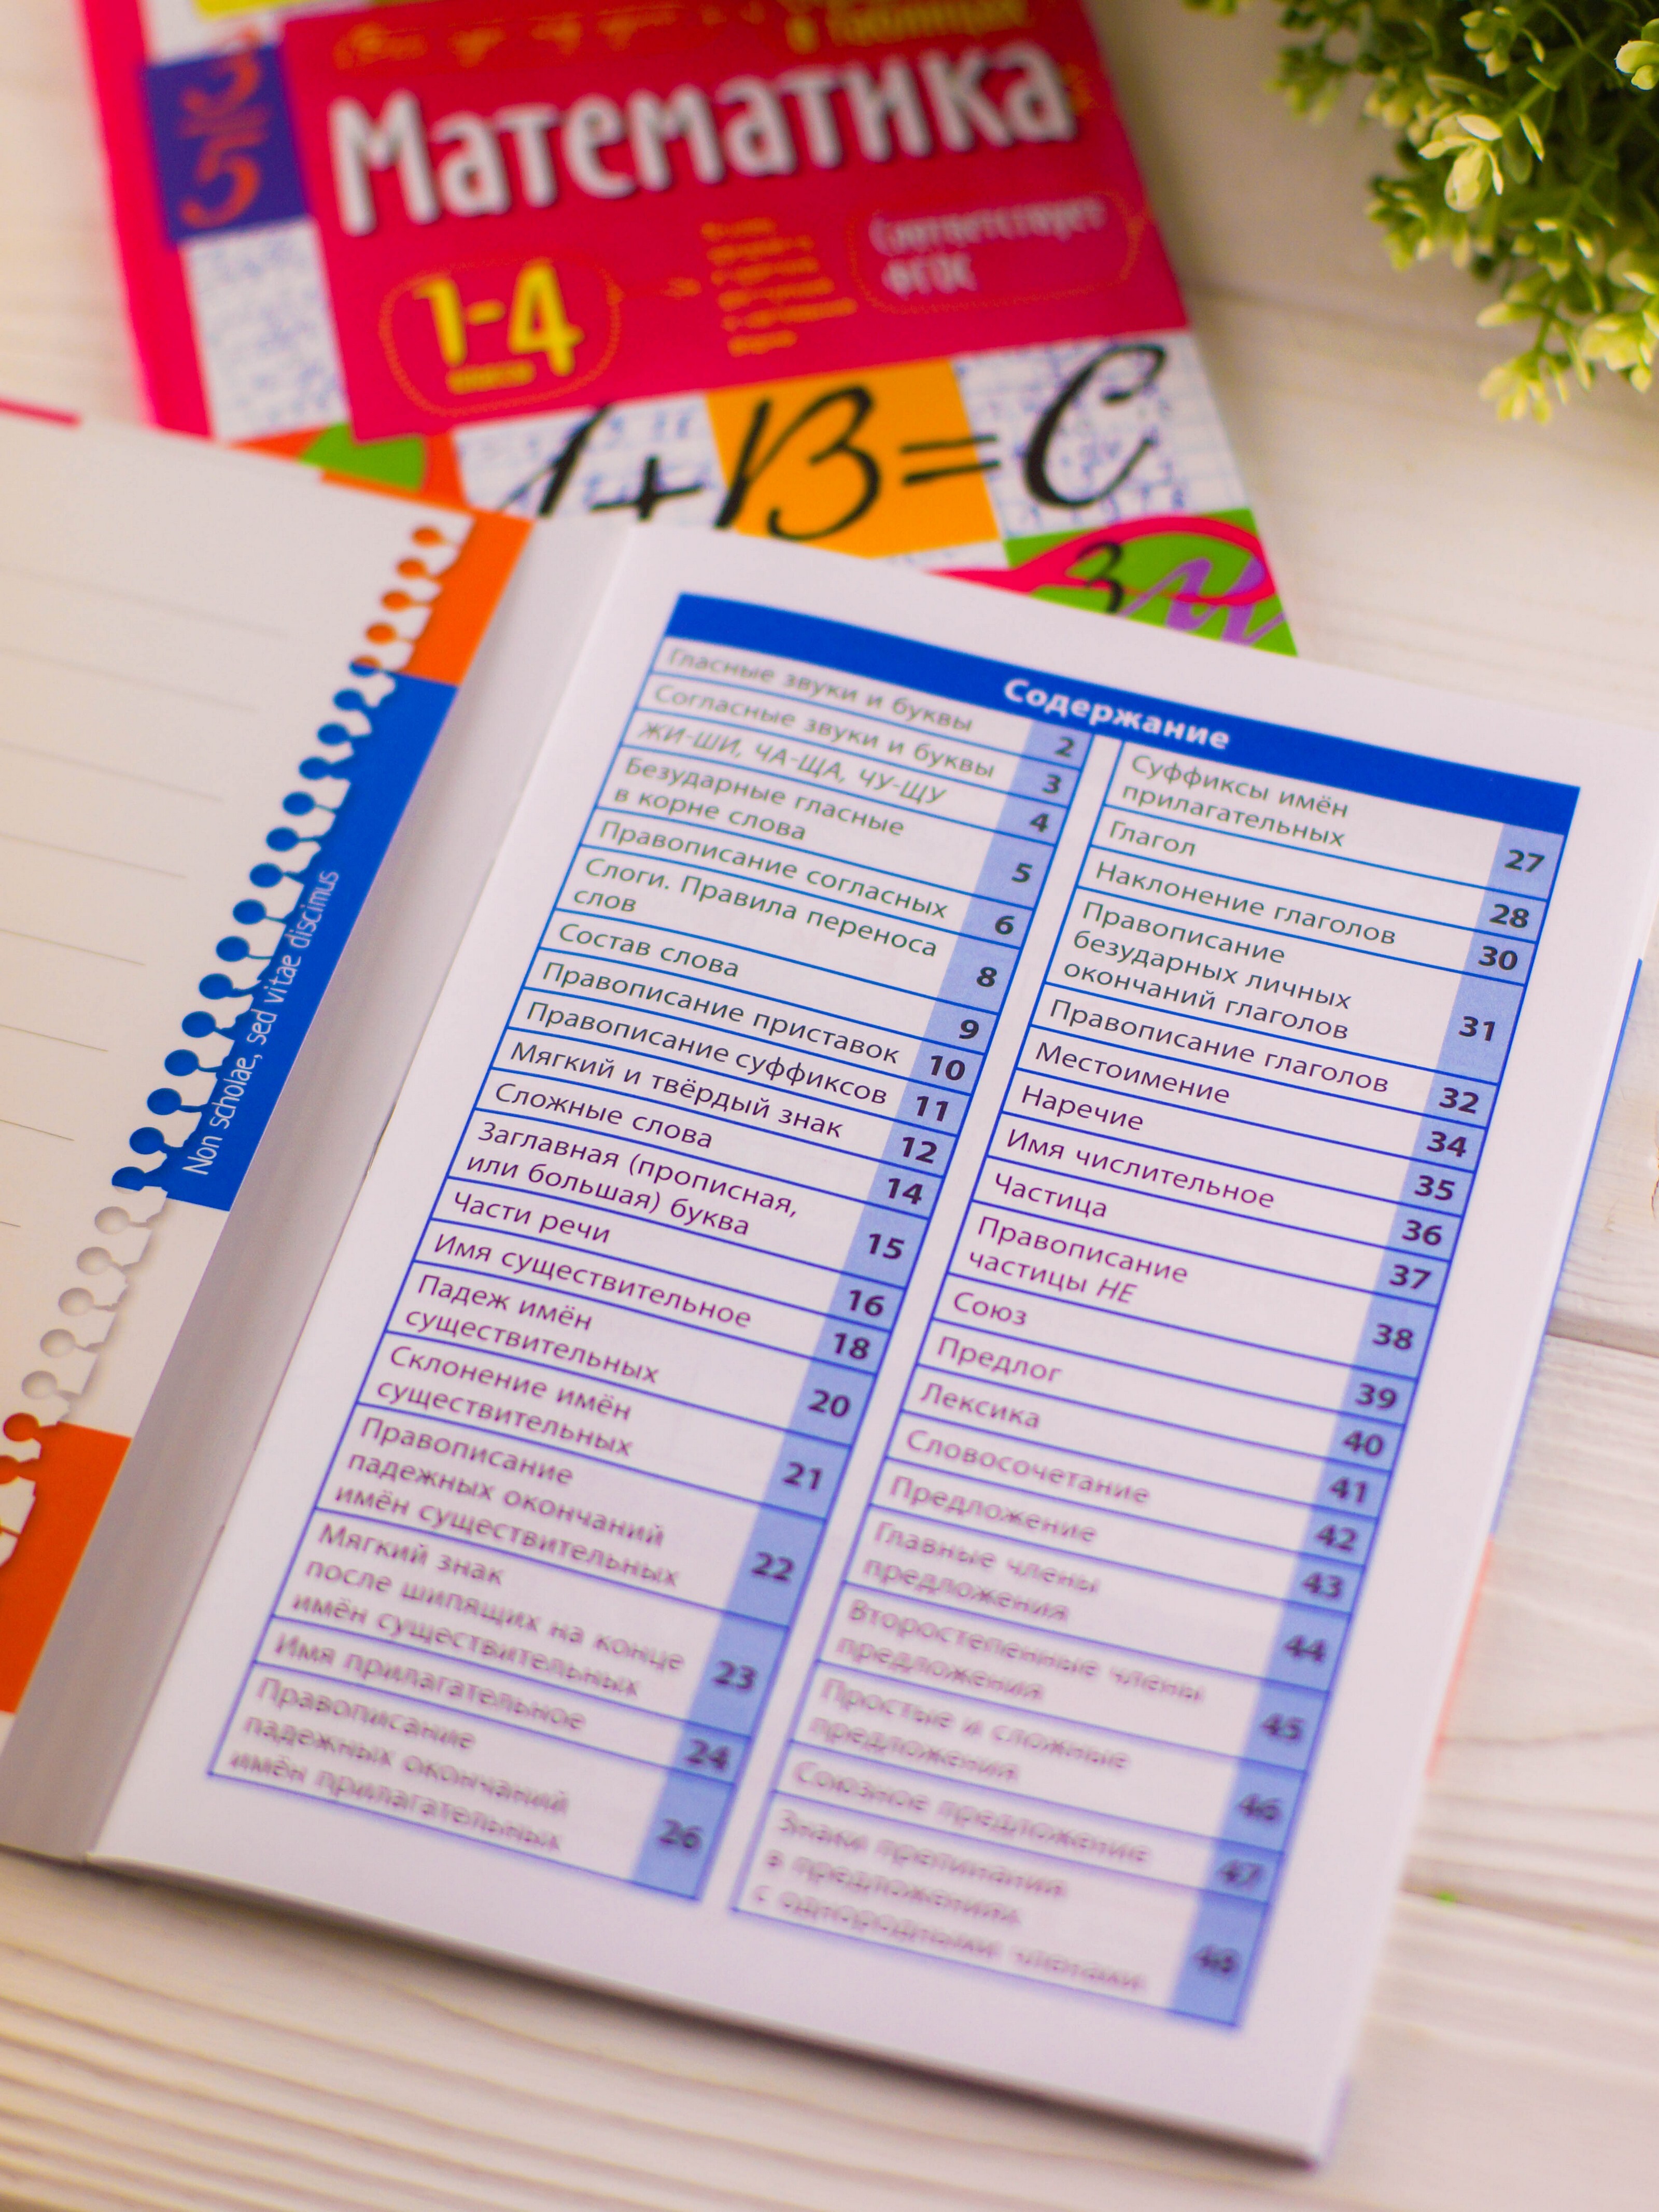 в таблицах
Математика
3
5
1-4
классы
Соответствует
ФГОС
A+B=C
3
Non scholae, sed vitae discimus
Содержание
Гласные звуки и буквы 2
Согласные звуки и буквы 3
ЖИ-ШИ, ЧА-ЩА, ЧУ-ЩУ 4
Безударные гласные
в корне слова 5
Правописание согласных 6
Слоги. Правила переноса
слов 8
Состав слова 9
Правописание приставок 10
Правописание суффиксов 11
Мягкий и твёрдый знак 12
Сложные слова 14
Заглавная (прописная,
или большая) буква 15
Части речи 16
Имя существительное 18
Падеж имён
существительных 20
Склонение имён
существительных 21
Правописание
падежных окончаний
имён существительных 22
Мягкий знак
после шипящих на конце
имён существительных 23
Имя прилагательное 24
Правописание
падежных окончаний
имён прилагательных 26
Суффиксы имён
прилагательных 27
Глагол 28
Наклонение глаголов 30
Правописание
безударных личных
окончаний глаголов 31
Правописание глаголов 32
Местоимение 34
Наречие 35
Имя числительное 36
Частица 37
Правописание
частицы НЕ 38
Союз 39
Предлог 40
Лексика 41
Словосочетание 42
Предложение 43
Главные члены
предложения 44
Второстепенные члены
предложения 45
Простые и сложные
предложения 46
Союзное предложение 47
Знаки препинания
в предложениях
с однородными членами 48